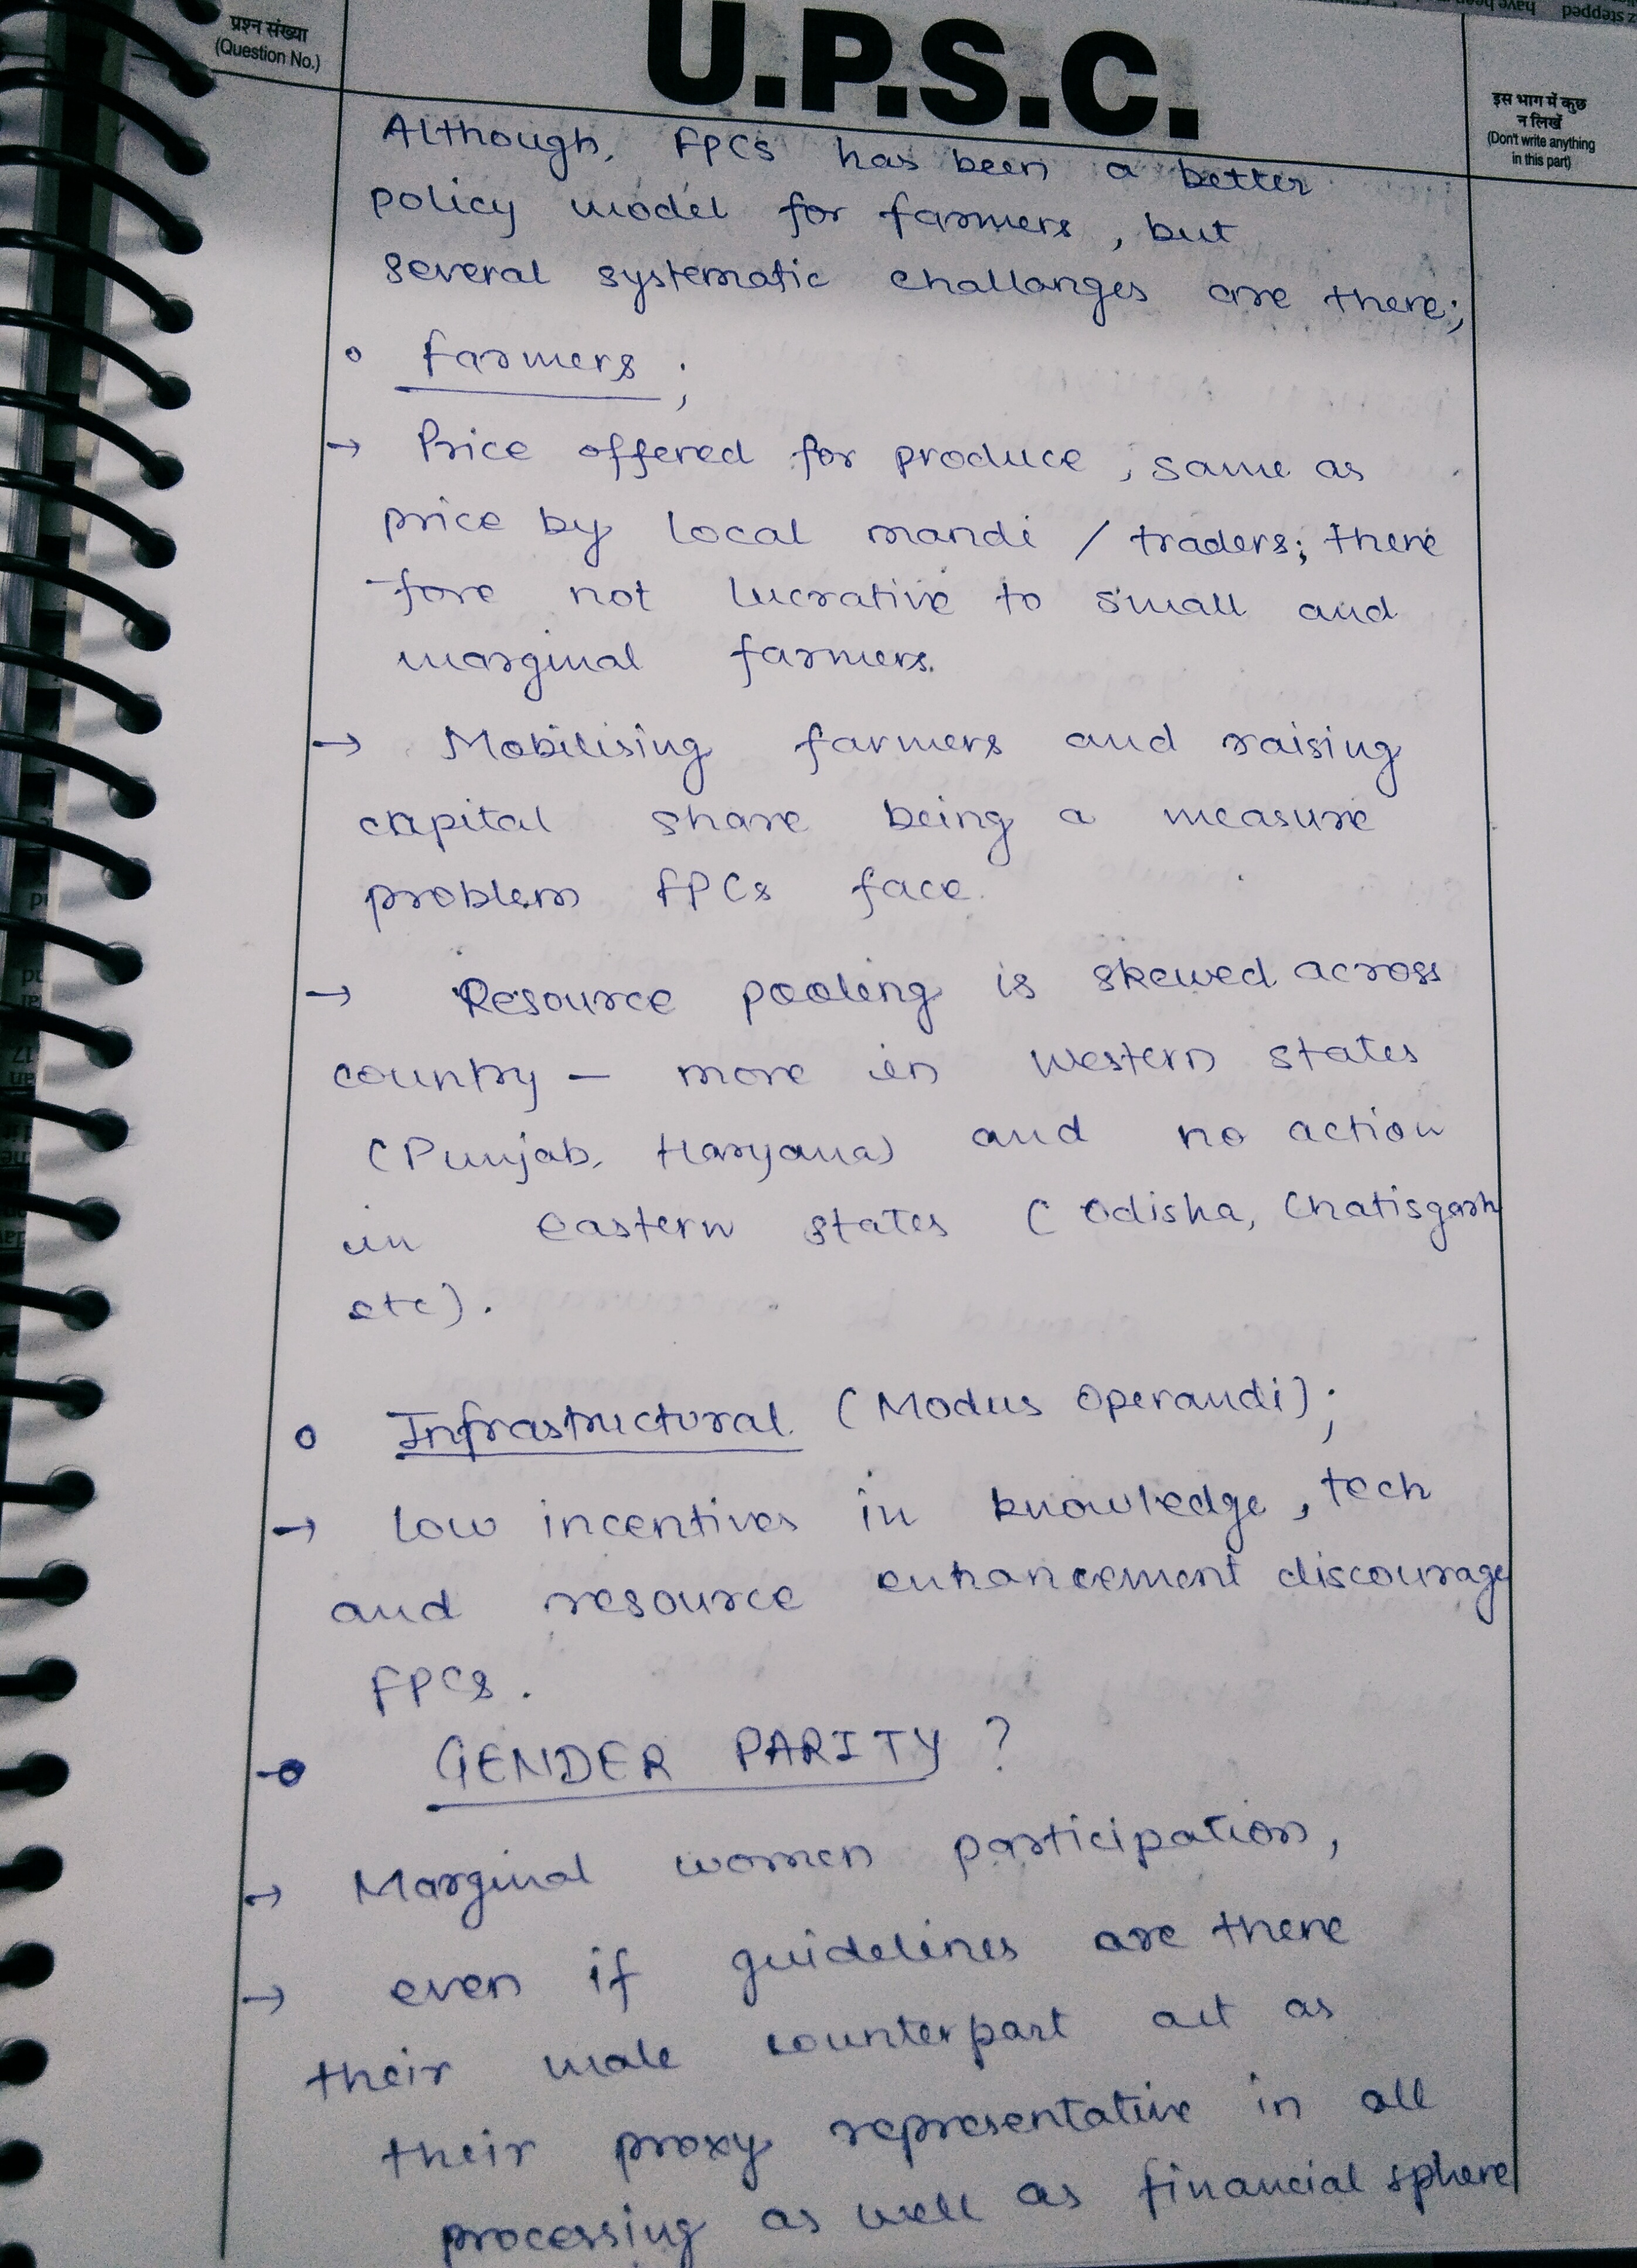 प्रश्न संख्या
(Question No.)
U.P.S.C.
इस भाग में कुछ
न लिखें
(Don't write anything
in this part)
Although, FPCs has been a better
policy model for farmers, but
several systematic challanges are there;
farmers;
→ Price offered for produce, same as
price by local mandi / traders; there
fore not lucrative to small and
marginal farmers.
→ Mobilising farmers and raising
capital share being a measure
problem FPCs face.
→ Resource pooling is skewed across
country - more in western states
(Punjab, Haryana) and no action
in eastern states (Odisha, Chatisgarh
etc).
Infrastructural (Modus Operandi);
→ Low incentives in knowledge, tech
and resource enhancement discourage
FPCs.
GENDER PARITY ?
→ Marginal women participation,
→ even if guidelines are there
their male counterpart act as
their proxy representative in all
processing as well as financial sphere